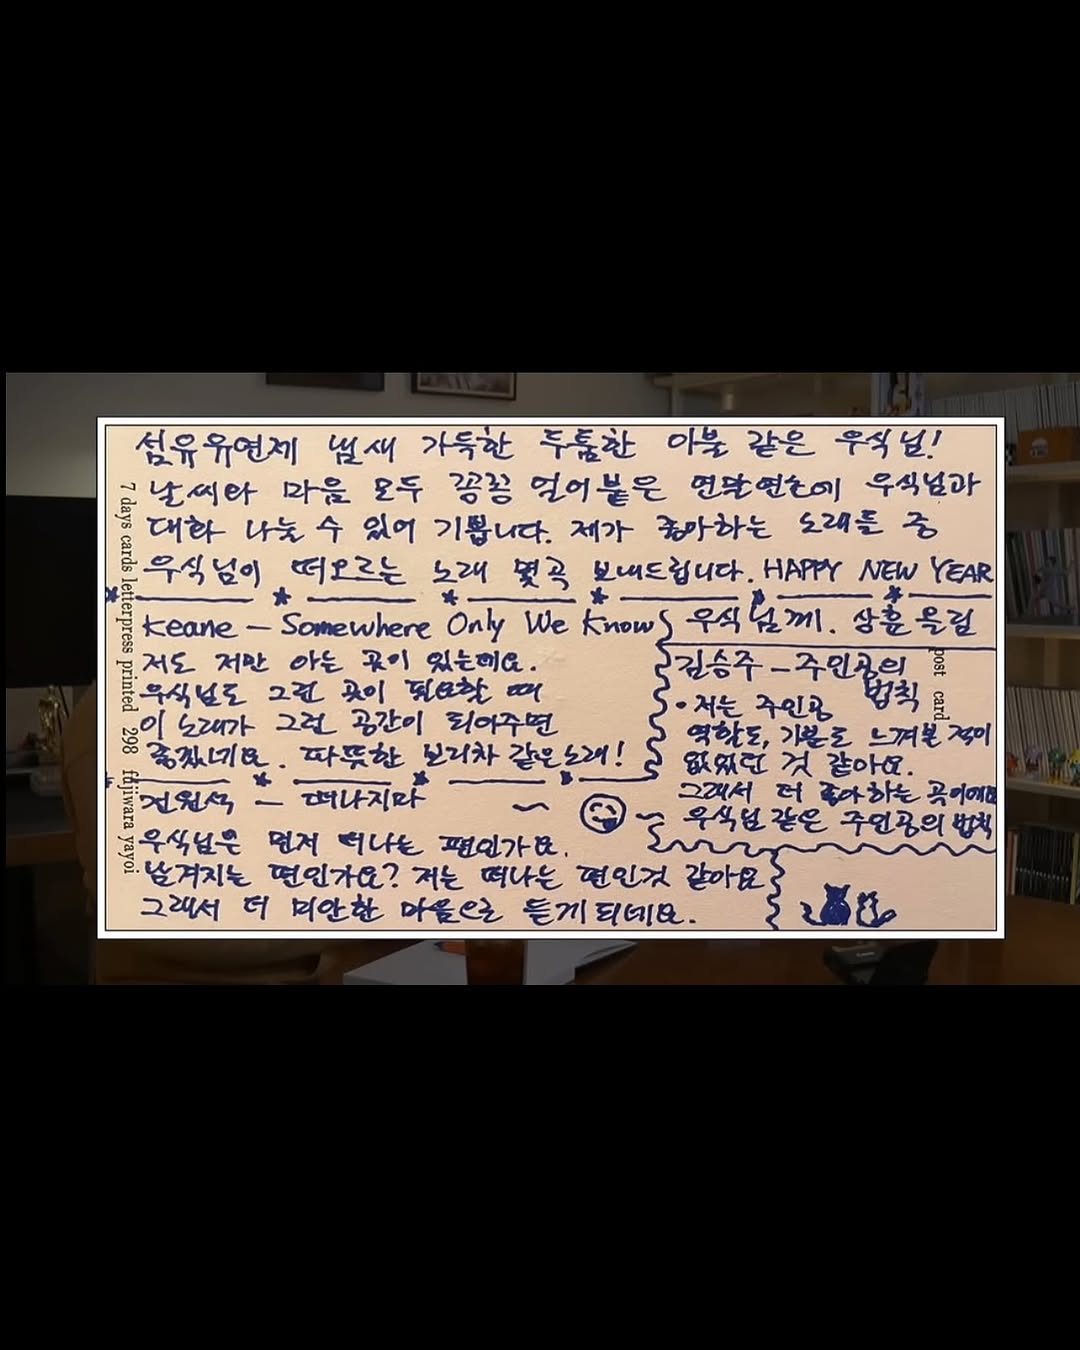 섬유유연제 냄새 가득한 두툼한 이불 같은 우식님!
날씨와 마음 모두 꽁꽁 얼어붙은 연말연초에 우식님과
대화 나눌 수 있어 기쁩니다. 제가 좋아하는 노래들 중
우식님이 떠오르는 노래 몇곡 보내드립니다. HAPPY NEW YEAR
우식님께. 상훈 올림
Keane - Somewhere Only We Know
저도 저만 아는 곳이 있는데요.
우식님도 그런 곳이 필요할 때
이 노래가 그런 공간이 되어주면
좋겠네요. 따뜻한 보리차 같은 노래!
김승주 - 주인공의
법칙
• 저는 주인공
역할도, 기분도 느껴본 적이
없었던 것 같아요.
그래서 더 좋아하는 곡이에요
우식님 같은 주인공의 법칙
전원석 - 떠나지마
우식님은 먼저 떠나는 편인가요.
남겨지는 편인가요? 저는 떠나는 편인것 같아요
그래서 더 미안한 마음으로 듣게 되네요.
7 days cards letterpress printed 298 fujiwara yayoi
post card